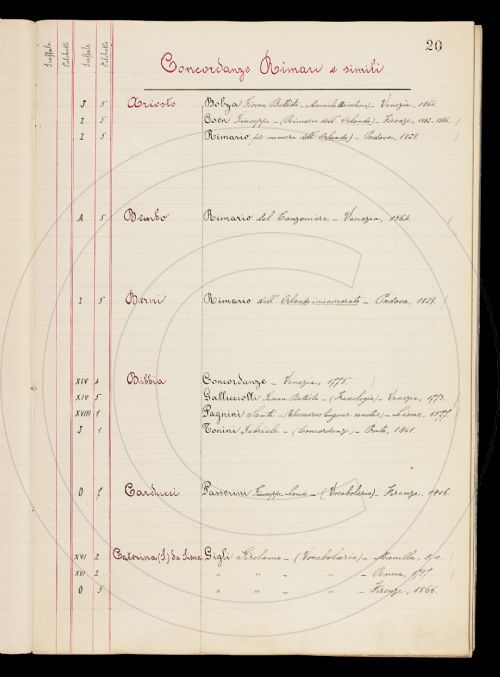 20
Scaffale Palchetto Scaffale Palchetto
Concordanze Rimari e simili
I 5 Ariosto Bolza Giovan Battista - Manuale Ariostesco - Venezia, 1866.
I 5 Coen Giuseppe - (Rimario dell' Orlando) - Firenze,
I 5 Rimario per numera dell' Orlando) - Padova, 1829.
A 5 Bembo Rimario del Canzoniere - Venezia, 1564.
I 5 Berni Rimario dell' Orlando innamorato - Padova, 1829.
XIV A Bibbia Concordanze - Venezia, 1775.
XIV 5 Gallicciolli Giovan Battista - (Fraselogia) - Venezia, 1773.
XVIII 1 Pagnini Santi - (Thesaurus linguae sanctae) - Lione,
J 1 Tonini Gabriele - (Concordanze) - Prato, 1861.
O Carducci Passerini Giuseppe Lando - (Vocabolario) - Firenze, 1916.
XVI 2 Caterina (S) da Siena Gigli Girolamo - (Vocabolario) - Manilla, s/a.
XVI 2 " " - " - Roma,
O 5 " " - " - Firenze, 1866.